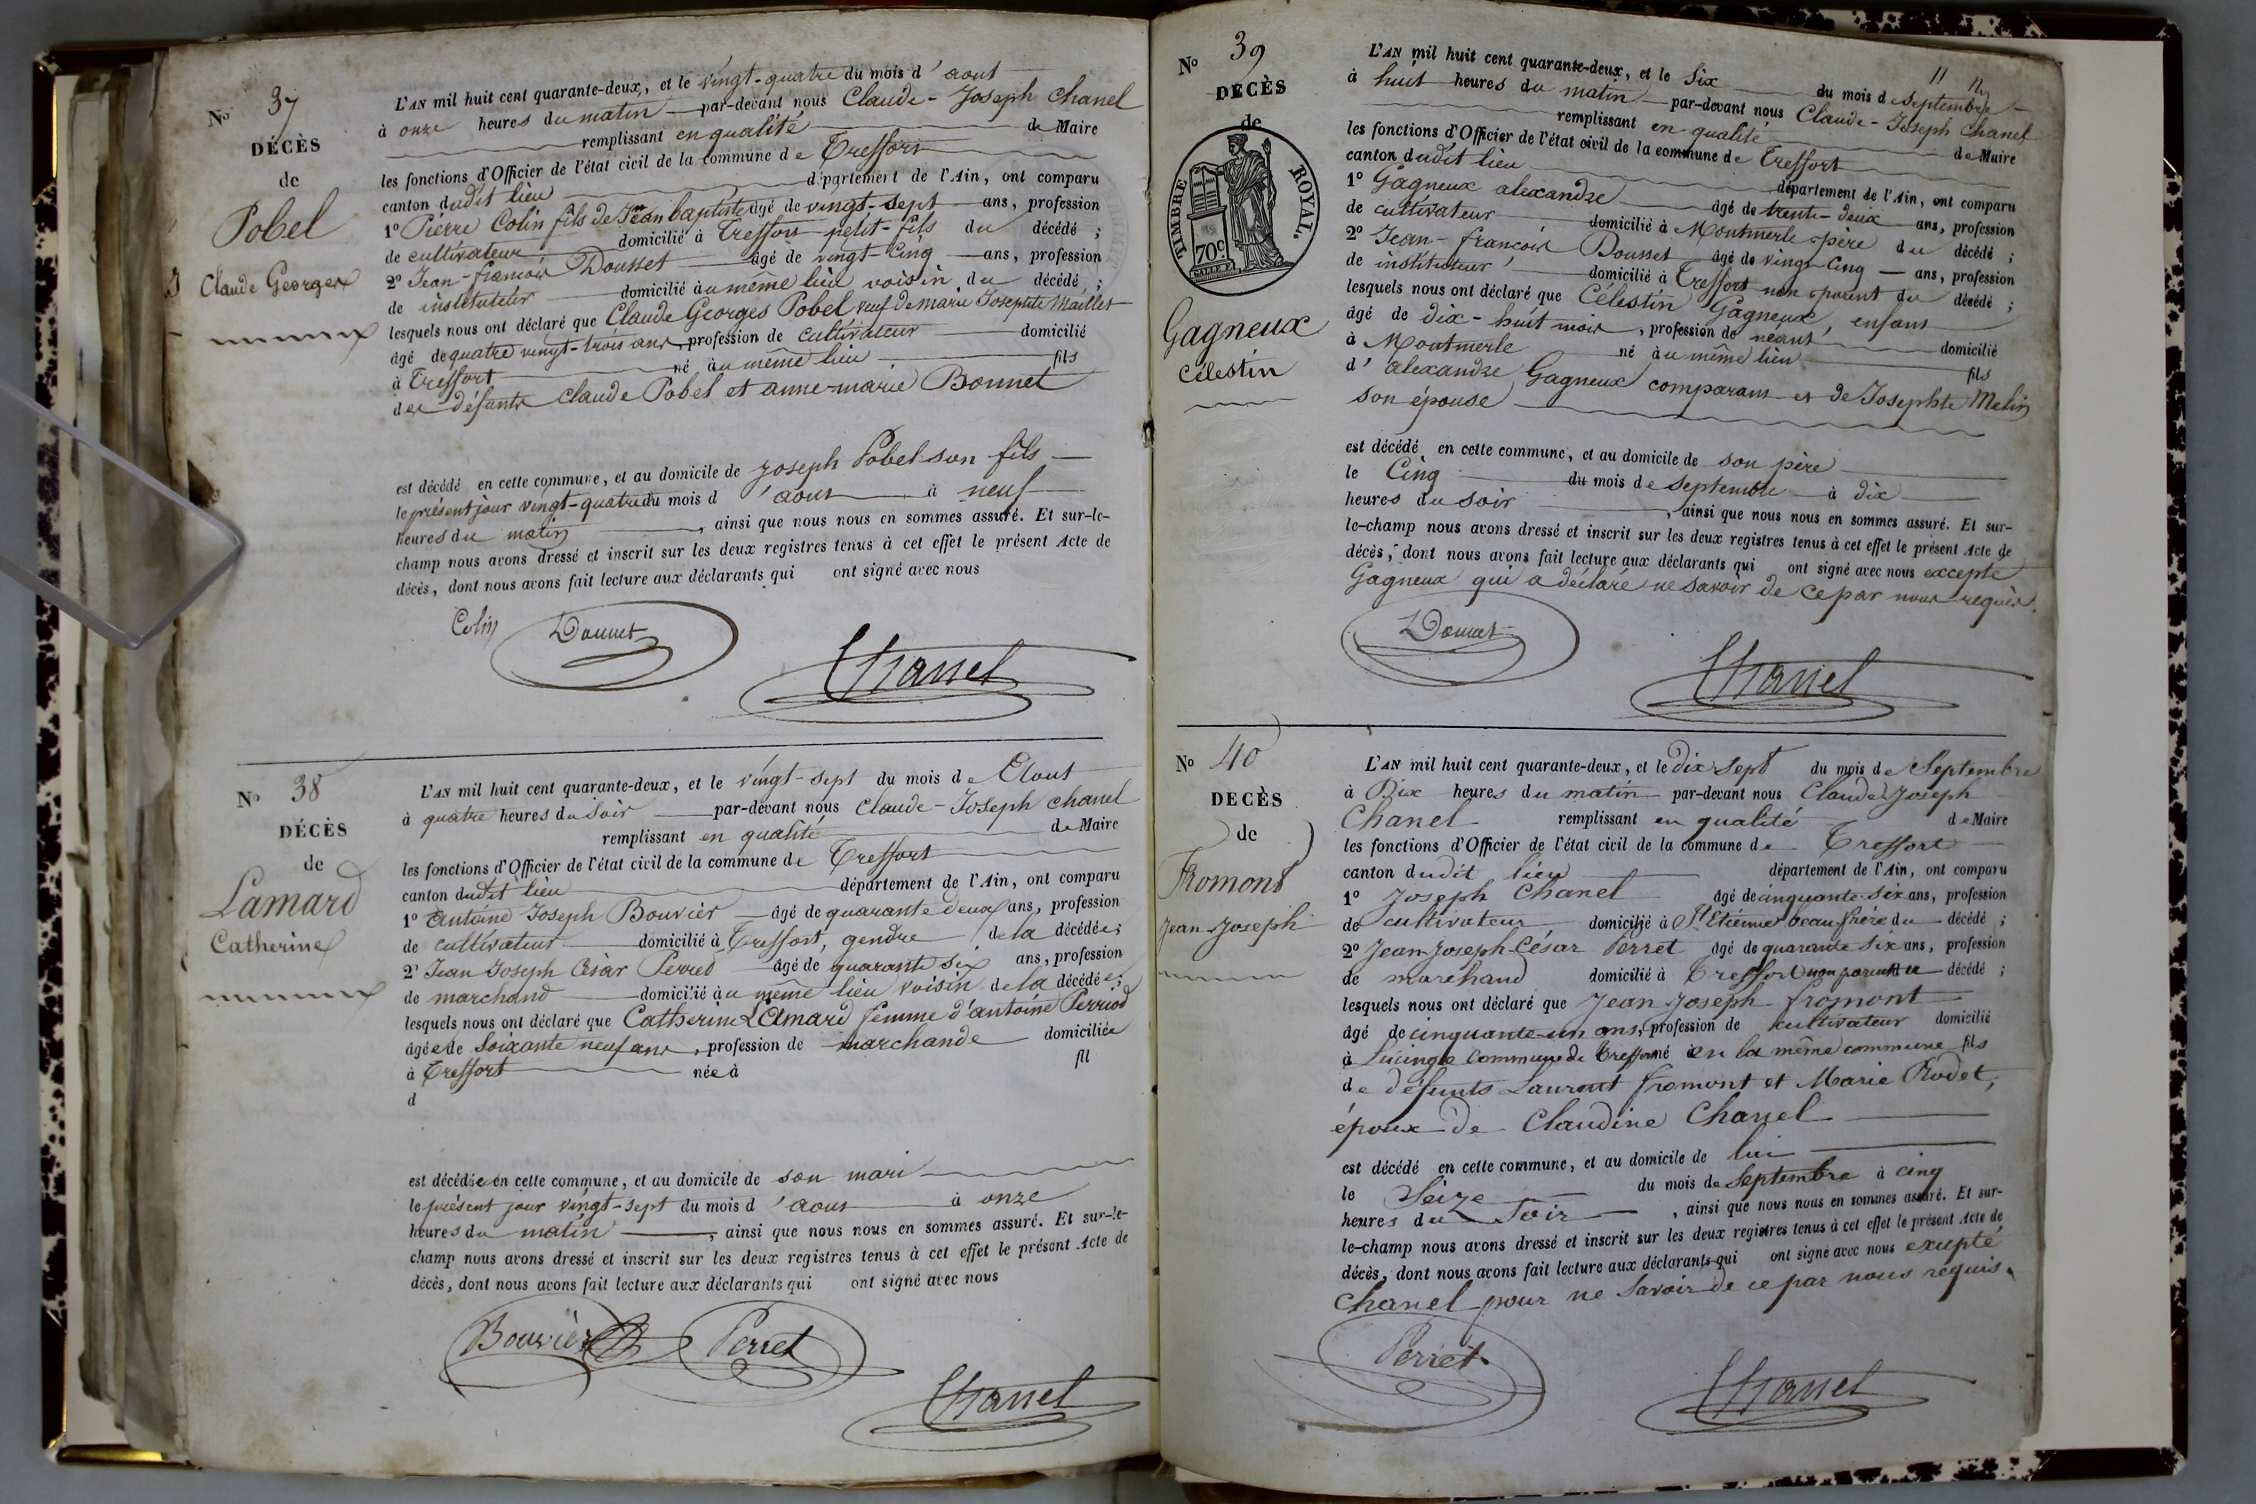 N° 37
DÉCÈS
de
Pobel
Claude Georges
L'AN mil huit cent quarante-deux, et le vingt-quatre du mois d'aout
à onze heures du matin par-devant nous Claude-Joseph Chanel
remplissant en qualité de Maire
les fonctions d'Officier de l'état civil de la commune de Treffort
canton dudit lieu département de l'Ain, ont comparu
1° Pierre Colin fils de Jean baptiste âgé de vingt-sept ans, profession
de cultivateur domicilié à Treffort petit-fils du décédé ;
2° Jean-françois Dousset âgé de vingt-cinq ans, profession
de instituteur domicilié au même lieu voisin du décédé ;
lesquels nous ont déclaré que Claude Georges Pobel veuf de marie Josephte Maillet
âgé de quatre vingt-trois ans, profession de cultivateur domicilié
à Treffort né au même lieu fils
des défunts Claude Pobel et anne-marie Bonnet
est décédé en cette commune, et au domicile de Joseph Pobel son fils
le présent jour vingt-quatre du mois d'aout à neuf
heures du matin, ainsi que nous nous en sommes assuré. Et sur-le-
champ nous avons dressé et inscrit sur les deux registres tenus à cet effet le présent Acte de
décès, dont nous avons fait lecture aux déclarants qui ont signé avec nous
Colin Dousset
Chanel
N° 38
DÉCÈS
de
Lamard
Catherine
L'AN mil huit cent quarante-deux, et le vingt-sept du mois de Aout
à quatre heures du soir par-devant nous Claude-Joseph Chanel
remplissant en qualité de Maire
les fonctions d'Officier de l'état civil de la commune de Treffort
canton dudit lieu département de l'Ain, ont comparu
1° Antoine Joseph Bouvier âgé de quarante deux ans, profession
de cultivateur domicilié à Treffort, gendre de la décédée ;
2° Jean Joseph César Perret âgé de quarante six ans, profession
de marchand domicilié au même lieu voisin de la décédée ;
lesquels nous ont déclaré que Catherine Lamard femme d'antoine Perriod
âgée de Soixante neuf ans, profession de marchande domiciliée
à Treffort née à fil
d
est décédée en cette commune, et au domicile de son mari
le présent jour vingt-sept du mois d'aout à onze
heures du matin, ainsi que nous nous en sommes assuré. Et sur-le-
champ nous avons dressé et inscrit sur les deux registres tenus à cet effet le présent Acte de
décès, dont nous avons fait lecture aux déclarants qui ont signé avec nous
Bouvier Perret
Chanel
11
N° 39
DÉCÈS
de
TIMBRE ROYAL.
70c
Gagneux
Célestin
L'AN mil huit cent quarante-deux, et le six du mois de septembre
à huit heures du matin par-devant nous Claude-Joseph Chanel
remplissant en qualité de Maire
les fonctions d'Officier de l'état civil de la commune de Treffort
canton dudit lieu département de l'Ain, ont comparu
1° Gagneux alexandre âgé de trente-deux ans, profession
de cultivateur domicilié à Montmerle père du décédé ;
2° Jean-françois Dousset âgé de vingt-cinq ans, profession
de instituteur domicilié à Treffort non parent du décédé ;
lesquels nous ont déclaré que Célestin Gagneux, enfant
âgé de dix-huit mois, profession de néant, domicilié
à Montmerle né au même lieu fils
d'alexandre Gagneux comparant et de Josephte Melin
son épouse
est décédé en cette commune, et au domicile de son père
le Cinq du mois de septembre à dix
heures du soir, ainsi que nous nous en sommes assuré. Et sur-
le-champ nous avons dressé et inscrit sur les deux registres tenus à cet effet le présent Acte de
décès, dont nous avons fait lecture aux déclarants qui ont signé avec nous excepté
Gagneux qui a déclaré ne savoir de ce par nous requis.
Dousset
Chanel
N° 40
DECÈS
de
Fromont
Jean Joseph
L'AN mil huit cent quarante-deux, et le dix sept du mois de Septembre
à Dix heures du matin par-devant nous Claude Joseph
Chanel remplissant en qualité de Maire
les fonctions d'Officier de l'état civil de la commune de Treffort
canton dudit lieu département de l'Ain, ont comparu
1° Joseph Chanel âgé de cinquante six ans, profession
de cultivateur domicilié à St Etienne beau frère du décédé ;
2° Jean Joseph César Perret âgé de quarante six ans, profession
de marchand domicilié à Treffort non parent du décédé ;
lesquels nous ont déclaré que Jean Joseph fromont
âgé de cinquante un ans, profession de cultivateur domicilié
à Lucinge commune de Treffort né en la même commune fils
de défunts Laurent fromont et Marie Rodet,
époux de Claudine Chanel
est décédé en cette commune, et au domicile de lui
le Seize du mois de Septembre à cinq
heures du Soir, ainsi que nous nous en sommes assuré. Et sur-
le-champ nous avons dressé et inscrit sur les deux registres tenus à cet effet le présent Acte de
décès, dont nous avons fait lecture aux déclarants qui ont signé avec nous excepté
Chanel pour ne savoir de ce par nous réquis.
Perret
Chanel